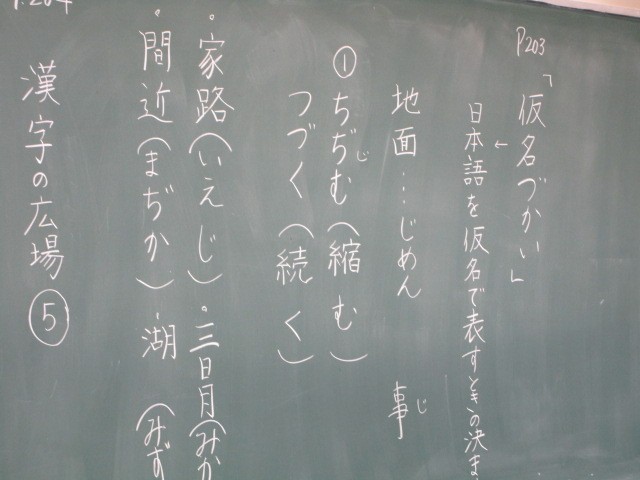 P203
「仮名づかい」
↓
日本語を仮名で表すときの決ま
地面…じめん 事
じ
①ちぢむ(縮む)
じ
つづく(続く)
・家路(いえじ)・三日月(みか
・間近(まぢか)・湖(みず
漢字の広場⑤
P.204